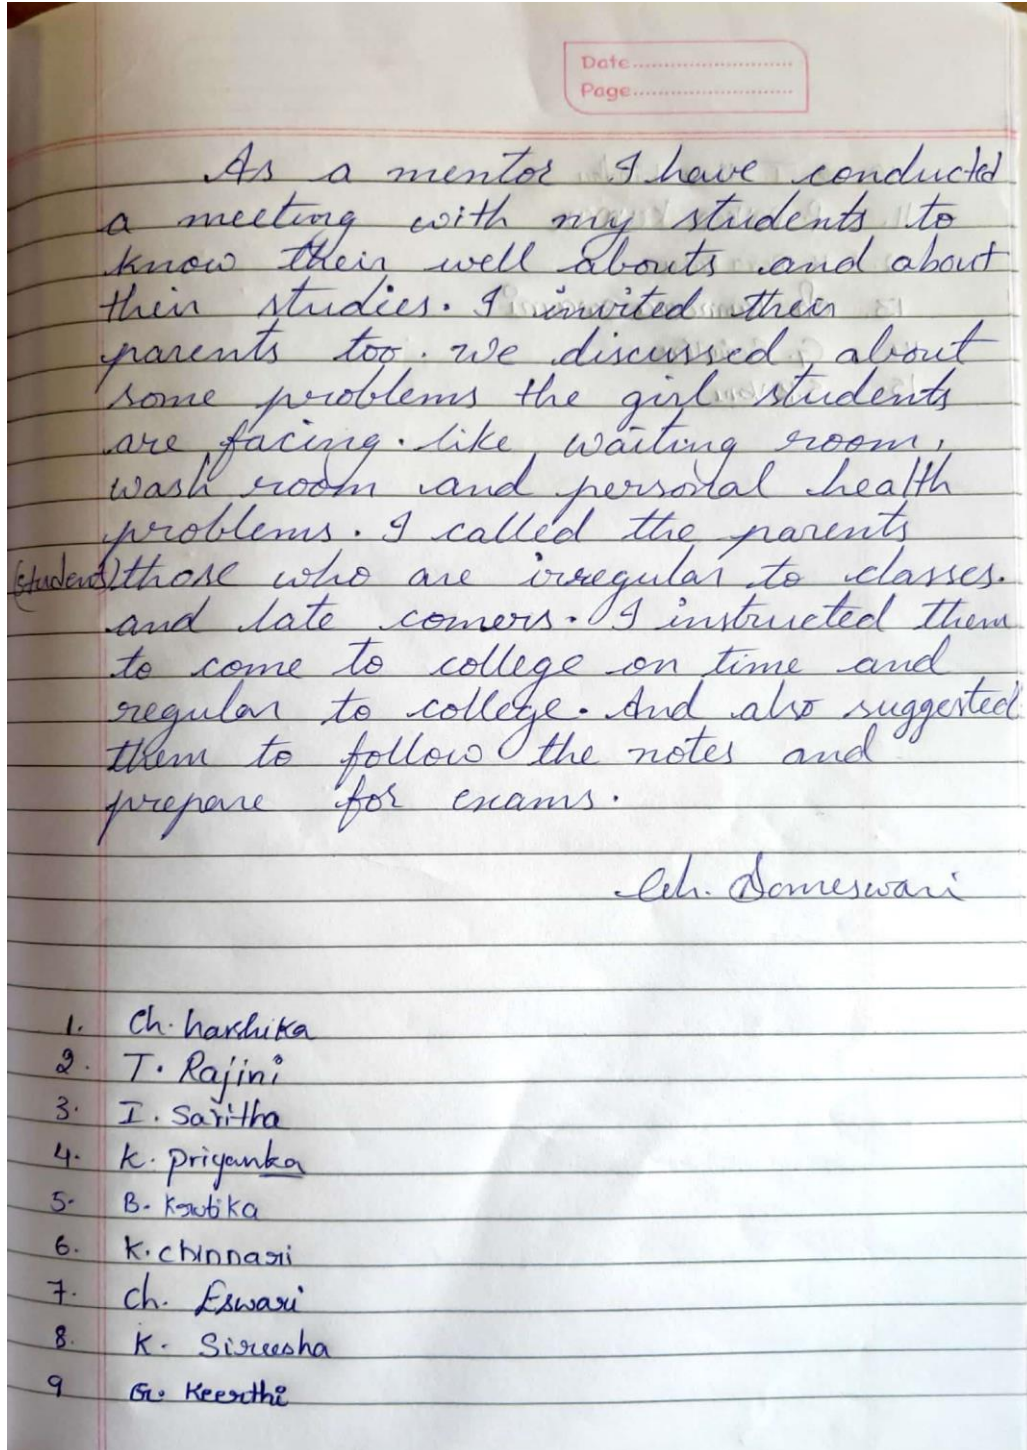 Date
Page
As a mentor I have conducted
a meeting with my students to
know their well abouts and about
their studies. I invited their
parents too. We discussed about
some problems the girl students
are facing. like waiting room,
wash room and personal health
problems. I called the parents
(students) those who are irregular to classes.
and late comers. I instructed them
to come to college on time and
regular to college. And also suggested
them to follow the notes and
prepare for exams.
Ch. Someswari
1. Ch. harshika
2. T. Rajini
3. I. Saritha
4. K. Priyanka
5. B. Krutika
6. K. chinnari
7. Ch. Eswari
8. K. Sireesha
9 G. Keerthi